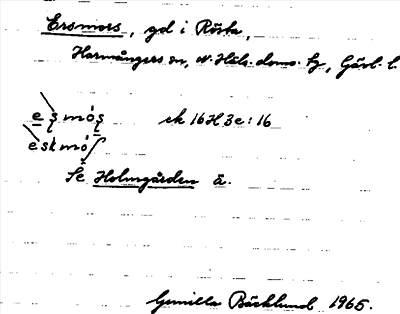 Ersmors, gd i Rösta,
Harmångers sn, n. Häls. doms. fg, Gävl. l.
e ş mó ş ek 16H3e:16
eskmó
Se Holmgården ä.
Gunilla Bäcklund 1965.